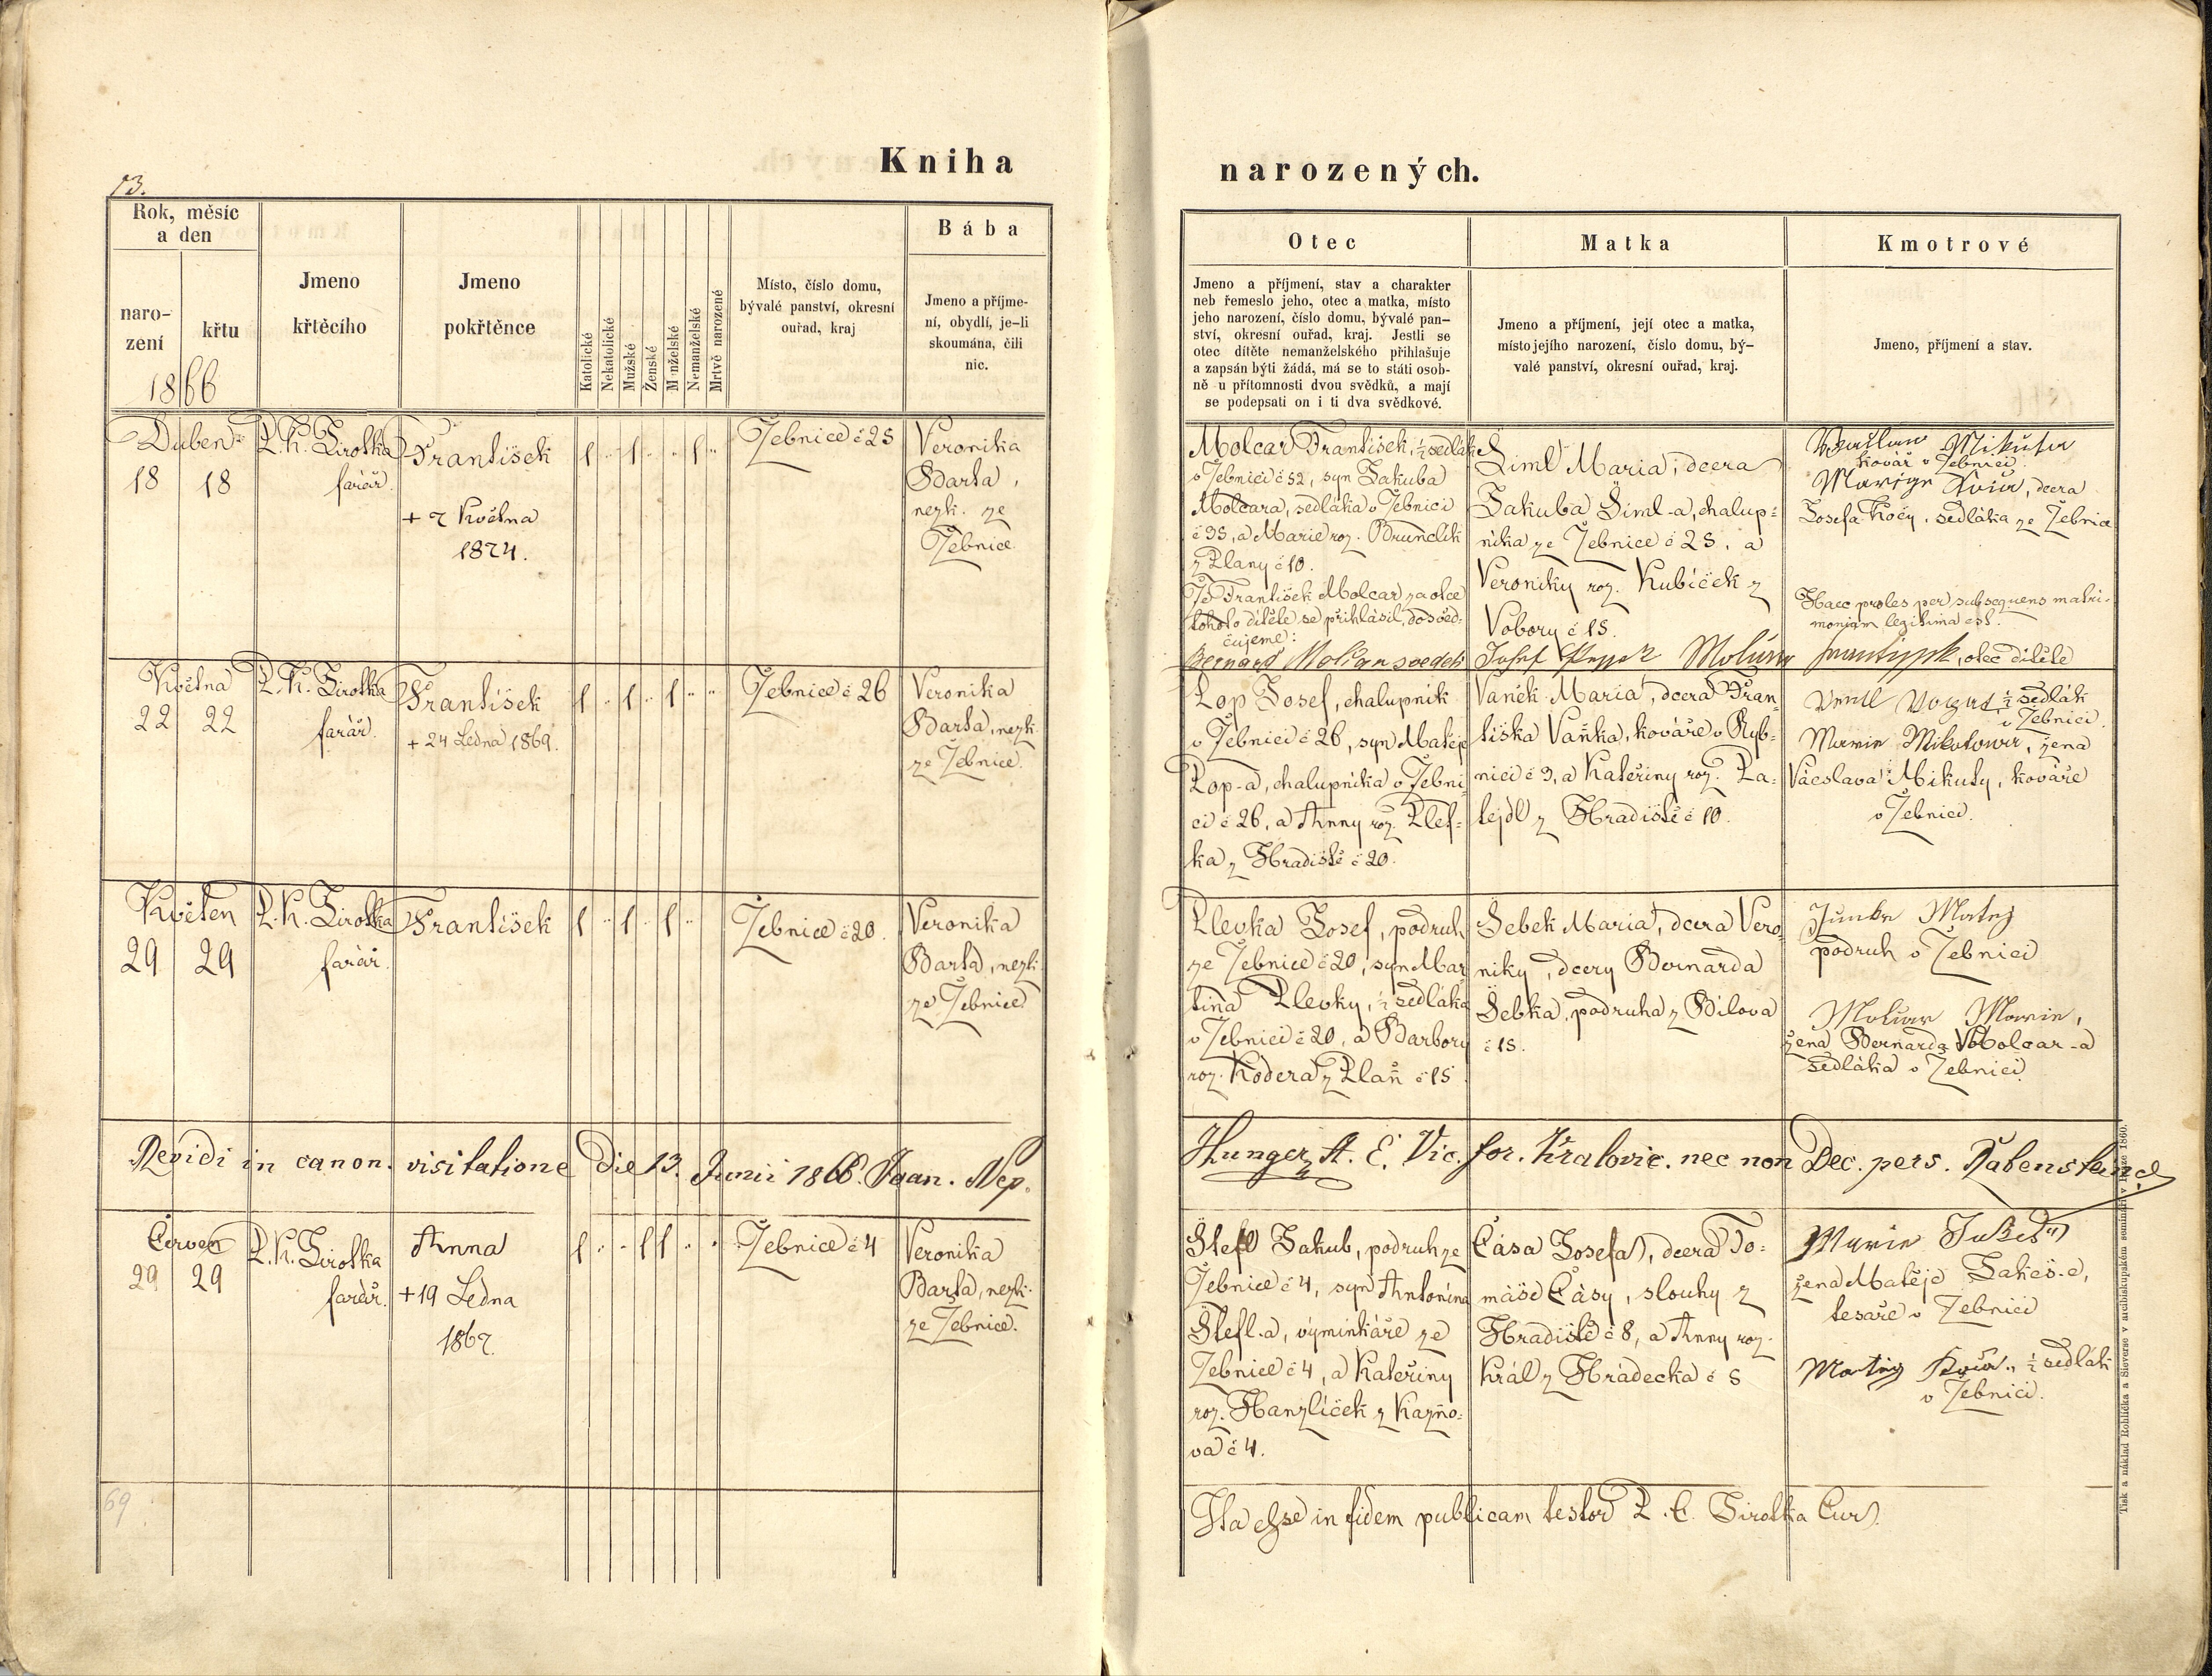 Kniha
narozených.
13.
Rok, měsíc
a den
naro-
zení
křtu
1866
Jmeno
křtěcího
Jmeno
pokřtěnce
Katolické
Nekatolické
Mužské
Ženské
Manželské
Nemanželské
Mrtvě narozené
Místo, číslo domu,
bývalé panství, okresní
ouřad, kraj
Bába
Jmeno a příjme-
ní, obydlí, je-li
skoumána, čili
nic.
Otec
Jmeno a příjmení, stav a charakter
neb řemeslo jeho, otec a matka, místo
jeho narození, číslo domu, bývalé pan-
ství, okresní ouřad, kraj. Jestli se
otec dítěte nemanželského přihlašuje
a zapsán býti žádá, má se to státi osob-
ně u přítomnosti dvou svědků, a mají
se podepsati on i ti dva svědkové.
Matka
Jmeno a příjmení, její otec a matka,
místo jejího narození, číslo domu, bý-
valé panství, okresní ouřad, kraj.
Kmotrové
Jmeno, příjmení a stav.
Duben
18 18
P. K. Sirotka
farář.
František
+ 7 Května
1874.
1 .. 1 .. .. 1 ..
Žebnice č 25
Veronika
Barta,
nezk. ze
Žebnice
Molcar František, ½ sedlák
v Žebnici č 52, syn Jakuba
Molcara, sedláka v Žebnici
č 35, a Marie roz. Brunclík
z Plany č 10.
Že František Molcar za otce
tohoto dítěte se přihlásil, dosvěd-
čujeme:
Bernard Molcar svědek
Šiml Maria, dcera
Jakuba Šiml-a, chalup-
níka ze Žebnice č 25, a
Veroniky roz. Kubíček z
Vobory č 15.
Josef
František, otec dítěte
Mikuta
kovář v Žebnici
dcera
Josefa Kočy, sedláka ze Žebnice
Haec proles per subsequens matri-
monium legitima est.
Května
22 22
P. K. Sirotka
farář.
František
+ 24 Ledna 1869.
1 .. 1 .. 1 .. ..
Žebnice č 26
Veronika
Barta, nezk.
ze Žebnice.
Lop Josef, chalupník
v Žebnici č 26, syn Matěje
Lop-a, chalupníka v Žebni-
ci č 26, a Anny roz. Plef-
ka z Hradiště č 20.
Vaněk Maria, dcera Fran-
tiška Vaňka, kováře v Ryb-
nici č 9, a Kateřiny roz. Pa-
tejdl z Hradiště č 10.
½ sedlák
v Žebnici.
Marie Mikutowa, žena
Václava Mikuty, kováře
v Žebnici.
Květen
29 29
P. K. Sirotka
farář.
František
1 .. 1 .. 1 ..
Žebnice č 20.
Veronika
Barta, nezk.
ze Žebnice
Plevka Josef, podruh
ze Žebnice č 20, syn Mar
tina Plevky, ½ sedláka
v Žebnici č 20, a Barbory
roz. Kodera z Plaň č 15
Šebek Maria, dcera Vero
niky, dcery Bernarda
Šebka, podruha z Bílova
č 15.
Matěj
podruh v Žebnici
Molcar Marie,
žena Bernarda Molcar-a
sedláka v Žebnici.
Revidi in canon. visitatione die 13. Junii 1866. Joan. Nep.
Hunger, A. E. Vic. for. Kralovic. nec non Dec. pers. Rabenstein.
Červen
29 29
P. K. Sirotka
farář.
Anna
+ 19 Ledna
1867.
1 .. .. 1 1 .. ..
Žebnice č 4
Veronika
Barta, nezk.
ze Žebnice.
Štefl Jakub, podruh ze
Žebnice č 4, syn Antonína
Štefl-a, výminkáře ze
Žebnice č 4, a Kateřiny
roz. Hanzlíček z Kazňo-
va č 4.
Čása Josefa, dcera To-
máše Čásy, slouhy z
Hradiště č 8, a Anny roz.
Král z Hrádecka č 5
Marie
žena Matěje Jakeš-e,
tesaře v Žebnici
½ sedlák
v Žebnici.
69
Ita esse in fidem publicam testor P. C. Sirotka Cur.
Tisk a náklad Rohlíčka a Sieverse v arcibiskupském semináři v Praze 1860.